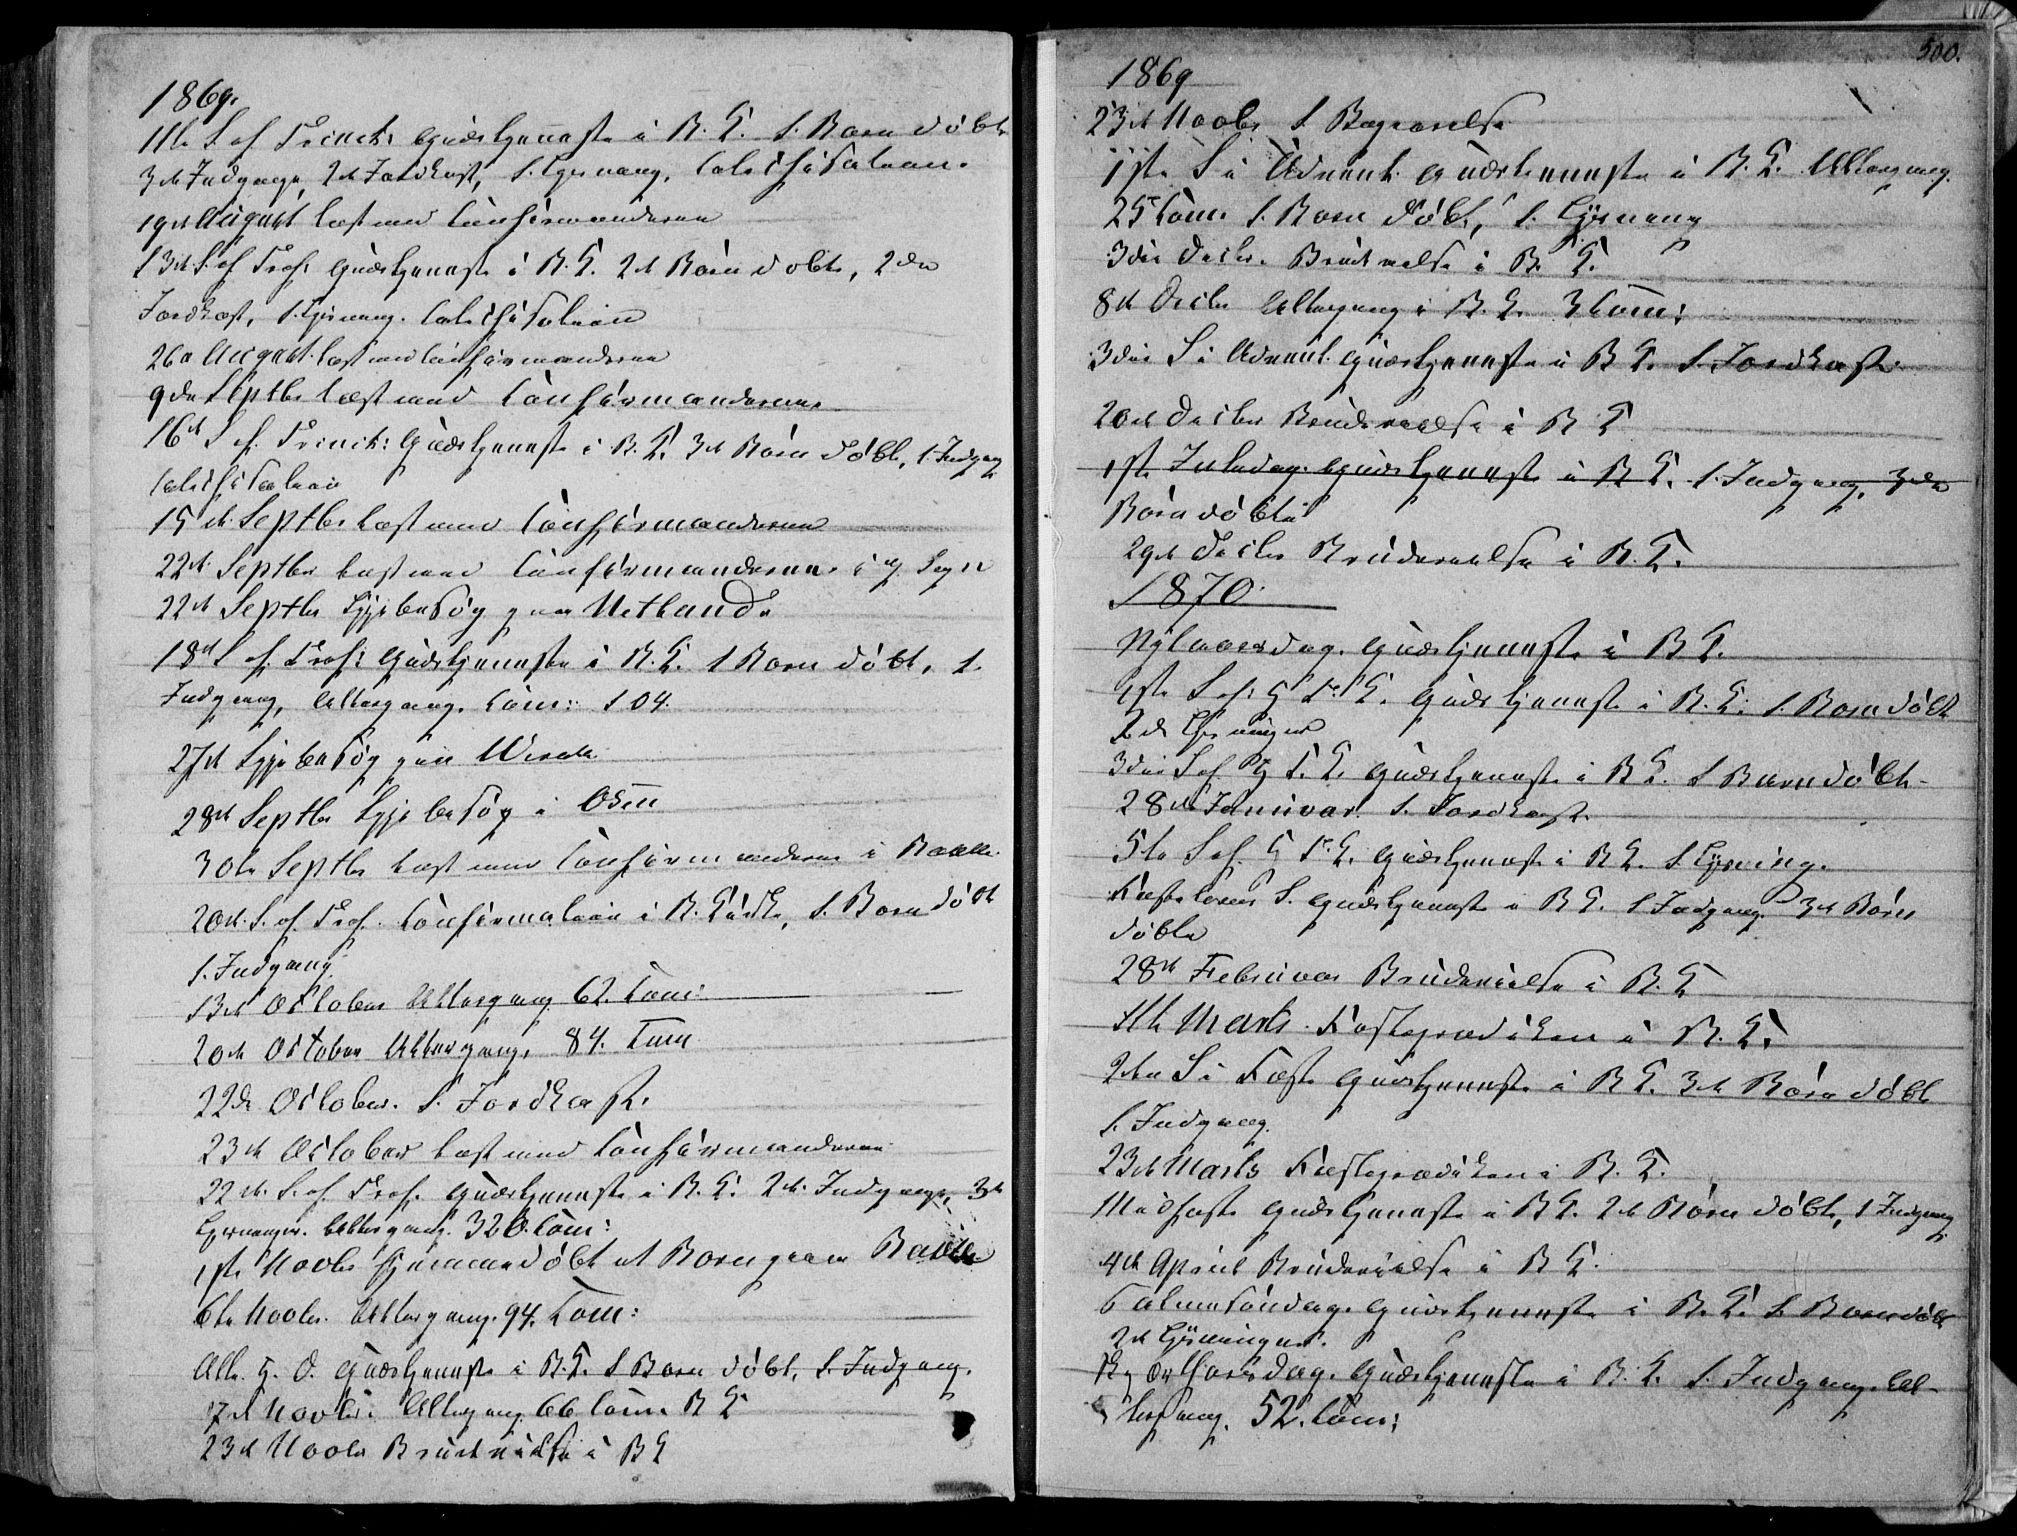 1869.
11te S. ef. Trinit: Gudstjeneste i B. K. 1. Barn døbt
3de Indgange, 2de Jordkast, 1. Lysning, Catechisation.
19de August læst med Confirmanderne
13de S. ef Tref: Gudstjeneste i B. K. 2de Børn døbte, 2de
Jordkast, 1. Lysning. Catechisation
26de August læst med Confirmanderne
9de Septbr læst med Confirmanderne
16de S. ef. Trinit: Gudstjeneste i B. K. 3de Børn døbt, 1. Indgang
Catechisation
15de Septbr læst med Confirmanderne
22de Septbr læst med Confirmanderne i Sogn
22de Septbr Sygebesøg paa Netland
18de S ef. Tref: Gudstjeneste i B. K. 1 Barn døbt, 1.
Indgang, Altergang. Com: 104.
27de Sygebesøg paa
28de Septbr Sygebesøg i Osen
30te Septbr læst med Confirmanderne i
20de S. ef. Tref. Confirmation i B. Kirke, 1. Barn døbt
1. Indgang
13de October Altergang 62. Com:
20de October Altergang, 84. Com
22de October. 1. Jordkast.
23de October læst med Confirmanderne
22de S. ef. Tref. Gudstjeneste i B. K. 2de Indgange, 3de
Lysninger. Altergang. 320. Com:
1ste Novbr Hjemmedøbt et Barn paa
6te Novbr. Altergang. 94. Com:
Alle. H. D. Gudstjeneste i B. K. 1 Barn døbt, 1. Indgang.
17de Novbr: Altergang 66 Com. B K
23de Novbr Brudevielse i B K
500.
1869
23de Novbr 1 Begravelse
1ste S i Advent. Gudstjeneste i B. K. Altergang.
25 Com. 1. Barn døbt, 1. Lysning
3die Decbr. Brudevielse i B. K.
8de Decbr Altergang i B. K. 3 Com:
3die S i Advent Gudstjeneste i B K. 1. Jordkast.
20de Decbr Brudevielse i B K
1ste Juledag. Gudstjeneste i B K. 1. Indgang, 3de
Børn døbte
29de Decbr Brudevielse i B. K.
1870.
Nytaarsdag. Gudstjeneste i B K.
1ste S. ef: H. Tr. K. Gudstjeneste i B. K. 1. Barn døbt
2de Lysninger
3die S ef. H T. K. Gudstjeneste i B K. 1 Barn døbt.
28de Januvar. 1. Jordkast.
5te S ef. H Tr. K. Gudstjeneste i B K. 1 Lysning.
Fastelavns S. Gudstjeneste i B K. 1 Indgang. 3de Børn
døbte
28de Februvar Brudevielse i B. K
11te Marts. Fasteprædiken i B. K.
2den S i Faste Gudstjeneste i B K. 3de Børn døbt
1. Indgang.
23de Marts Fasteprædiken i B. K.
Midfaste Gudstjeneste i B K. 2de Børn døbt, 1 Indgang
4de April Brudevielse i B K.
Palmesøndag. Gudstjeneste i B. K. 1. Barn døbt
2de Lysninger.
Skjærthorsdag. Gudstjeneste i B. K. 1. Indgang. Al-
tergang. 52. Com: